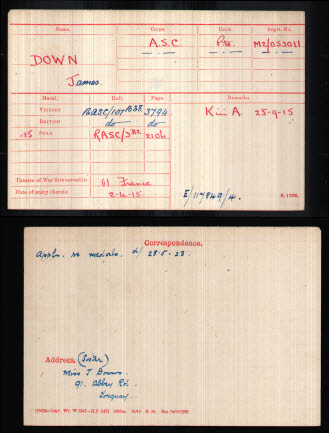 Name. Corps. Rank. Regtl. No.
DOWN A.S.C. Pte. M2/053011
James.
Medal. Roll. Page. Remarks.
VICTORY RASC/101 B38 3794 Kin A. 25-9-15
BRITISH do do
15 STAR RASC/3 B2 2106
Theatre of War first served in (1) France
Date of entry therein 2-4-15 E/117849/4.
K. 1380.
Correspondence.
Appln. re medals, d/ 28.5.23.
Address. (Sister)
Miss J Down
91. Abbey Rd.
Torquay.